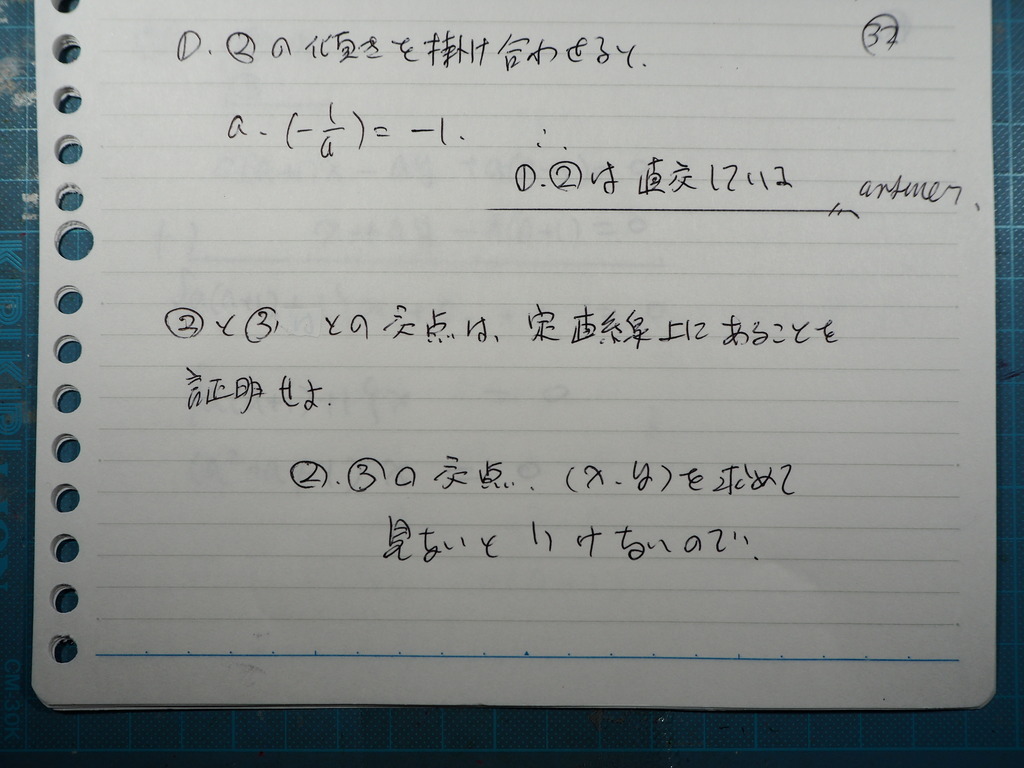 ㊲
①.②の傾きを掛け合わせると、
a.(-1/a)= -1.
∴
①.②は直交している answer.
②と③ との交点は、定直線上にあることを
証明せよ.
②.③の交点.(x.y)を求めて
見ないといけないので、